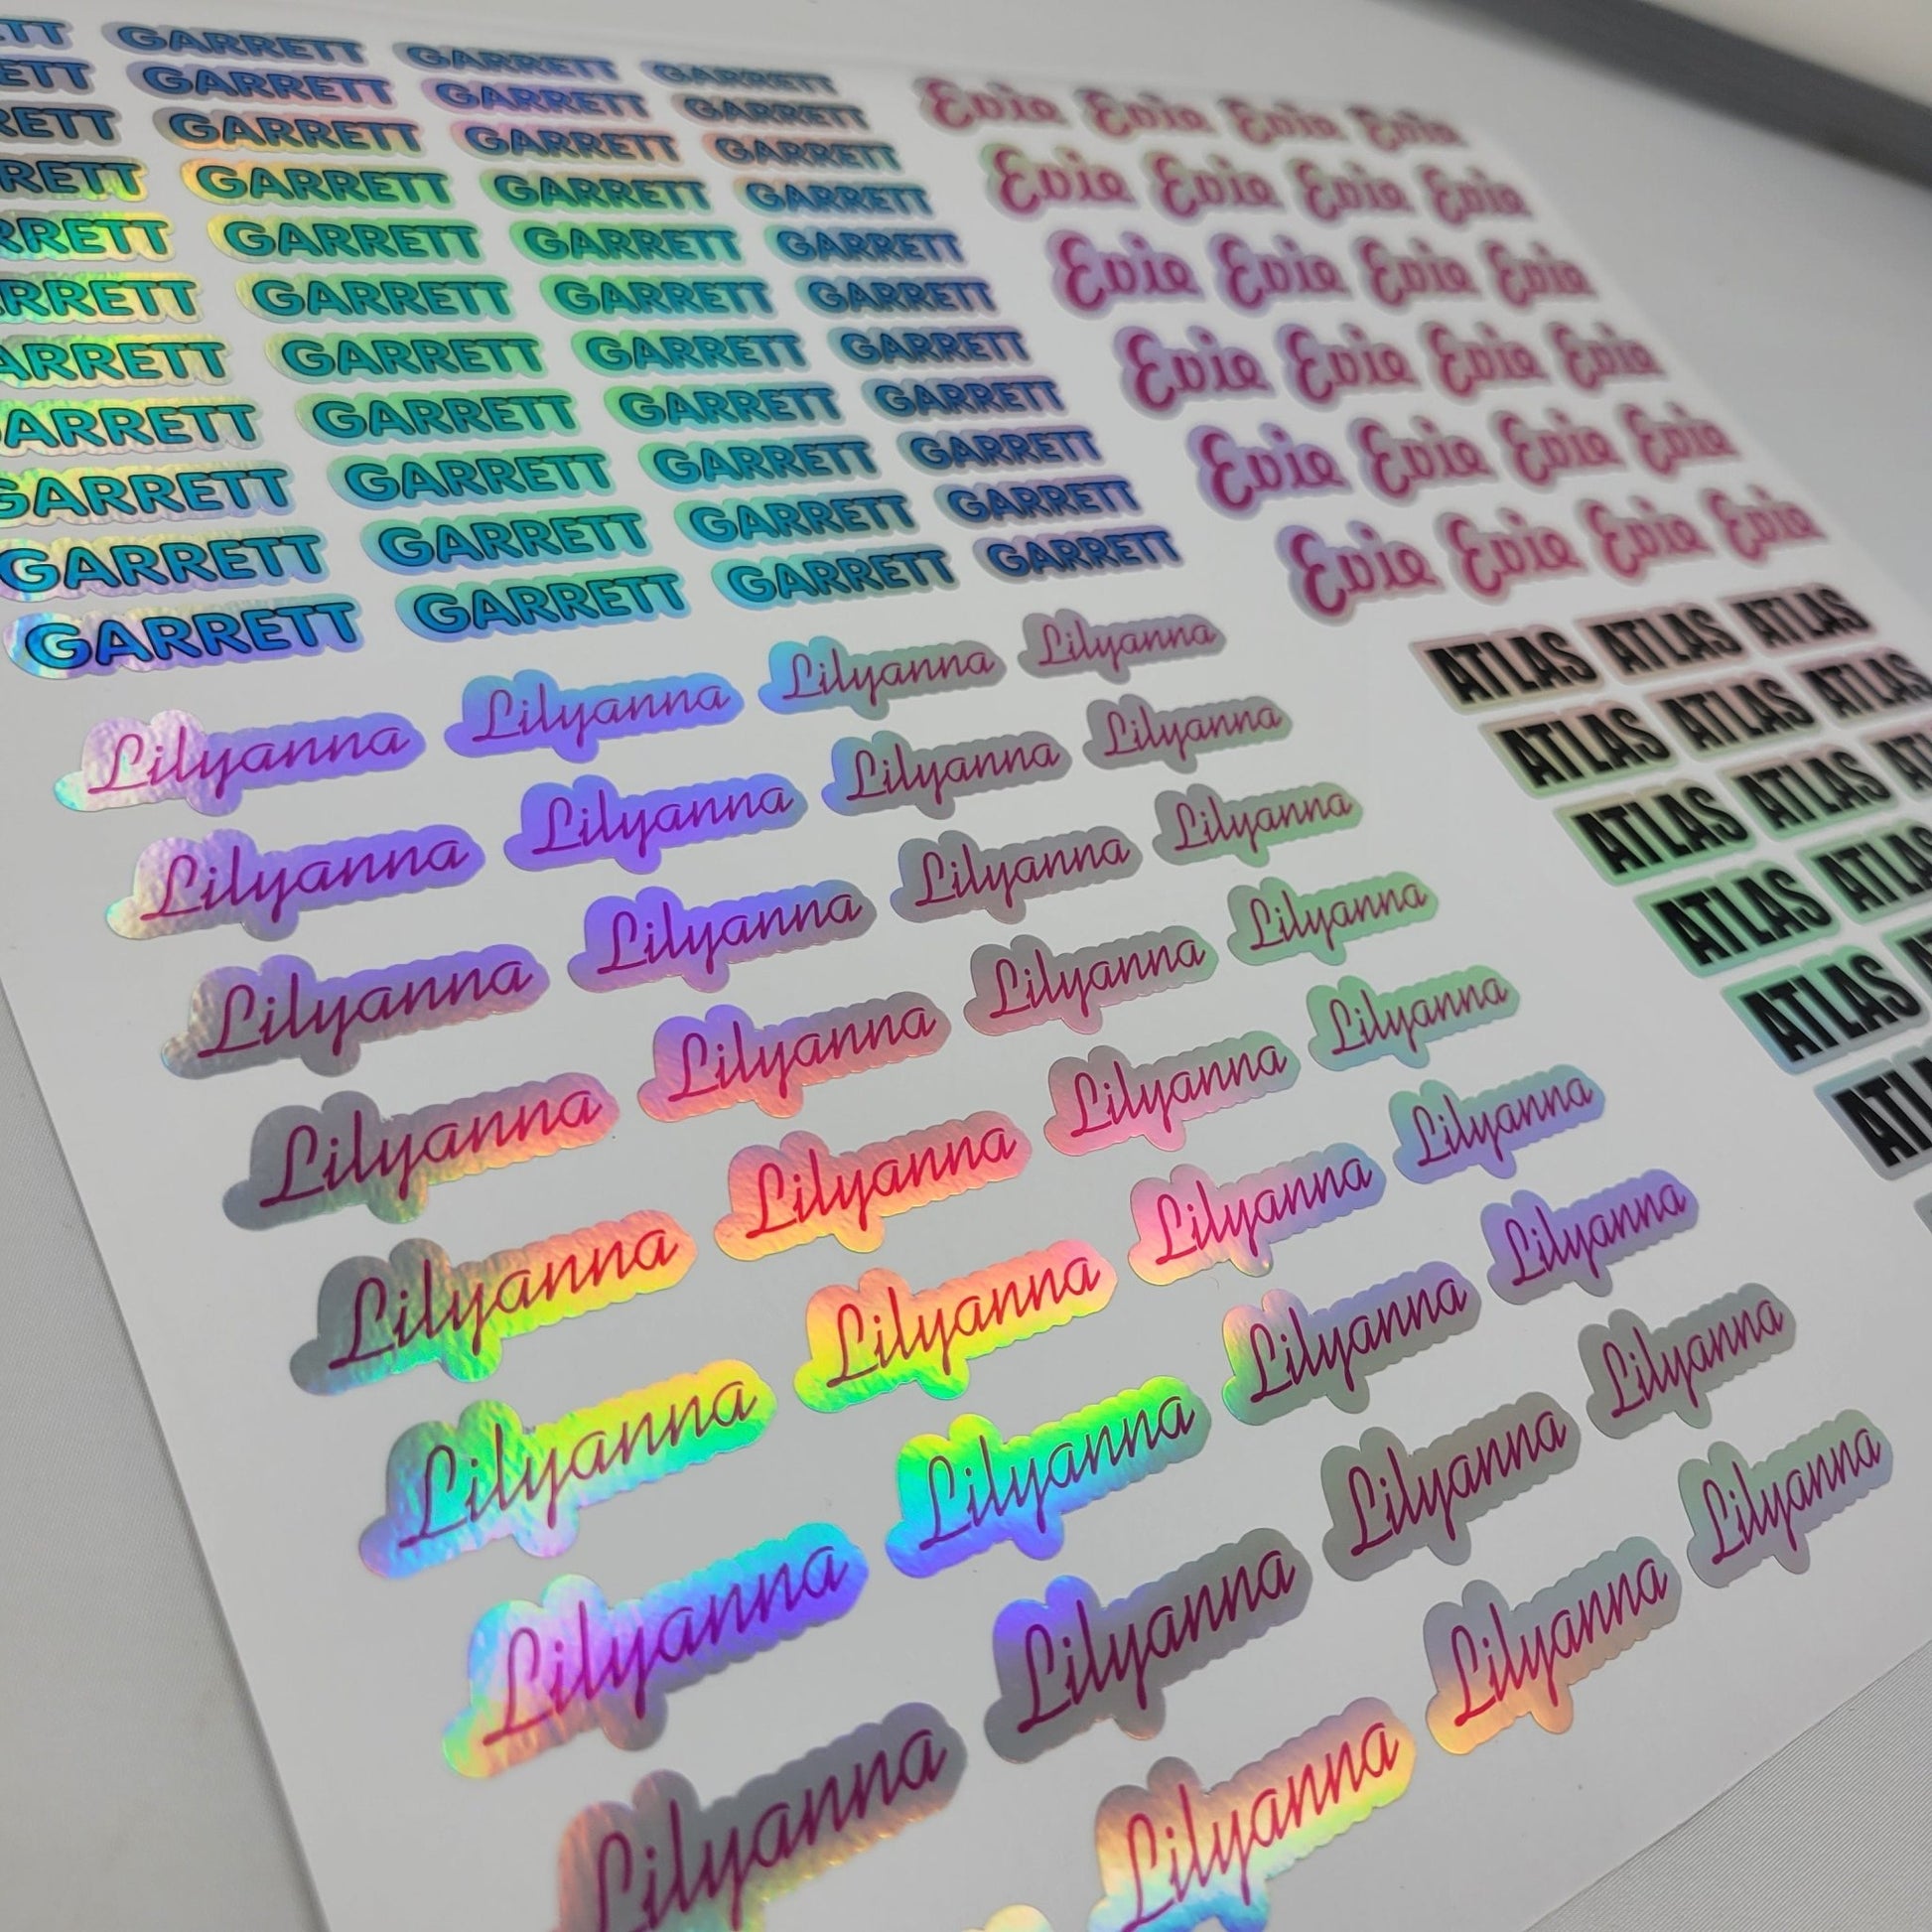 TT GARRETT GARRETT GARRETT
ETT GARRETT GARRETT GARRETT
RETT GARRETT GARRETT GARRETT
RETT GARRETT GARRETT GARRETT
RRETT GARRETT GARRETT GARRETT
RRETT GARRETT GARRETT GARRETT
ARRETT GARRETT GARRETT GARRETT
ARRETT GARRETT GARRETT GARRETT
GARRETT GARRETT GARRETT GARRETT
GARRETT GARRETT GARRETT GARRETT
GARRETT GARRETT GARRETT GARRETT
Evie Evie Evie Evie
Evie Evie Evie Evie
Evie Evie Evie Evie
Evie Evie Evie Evie
Evie Evie Evie Evie
Evie Evie Evie Evie
Lilyanna Lilyanna Lilyanna Lilyanna
Lilyanna Lilyanna Lilyanna Lilyanna
Lilyanna Lilyanna Lilyanna Lilyanna
Lilyanna Lilyanna Lilyanna Lilyanna
Lilyanna Lilyanna Lilyanna Lilyanna
Lilyanna Lilyanna Lilyanna Lilyanna
Lilyanna Lilyanna Lilyanna Lilyanna
Lilyanna Lilyanna Lilyanna Lilyanna
Lilyanna Lilyanna Lilyanna
ATLAS ATLAS ATLAS
ATLAS ATLAS ATLAS
ATLAS ATLAS AT
ATLAS ATLAS
ATLAS
ATL